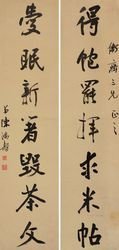 衡齋三兄正之
得飽罷揮求米帖
愛眠新著毀茶文
弟陳鴻壽